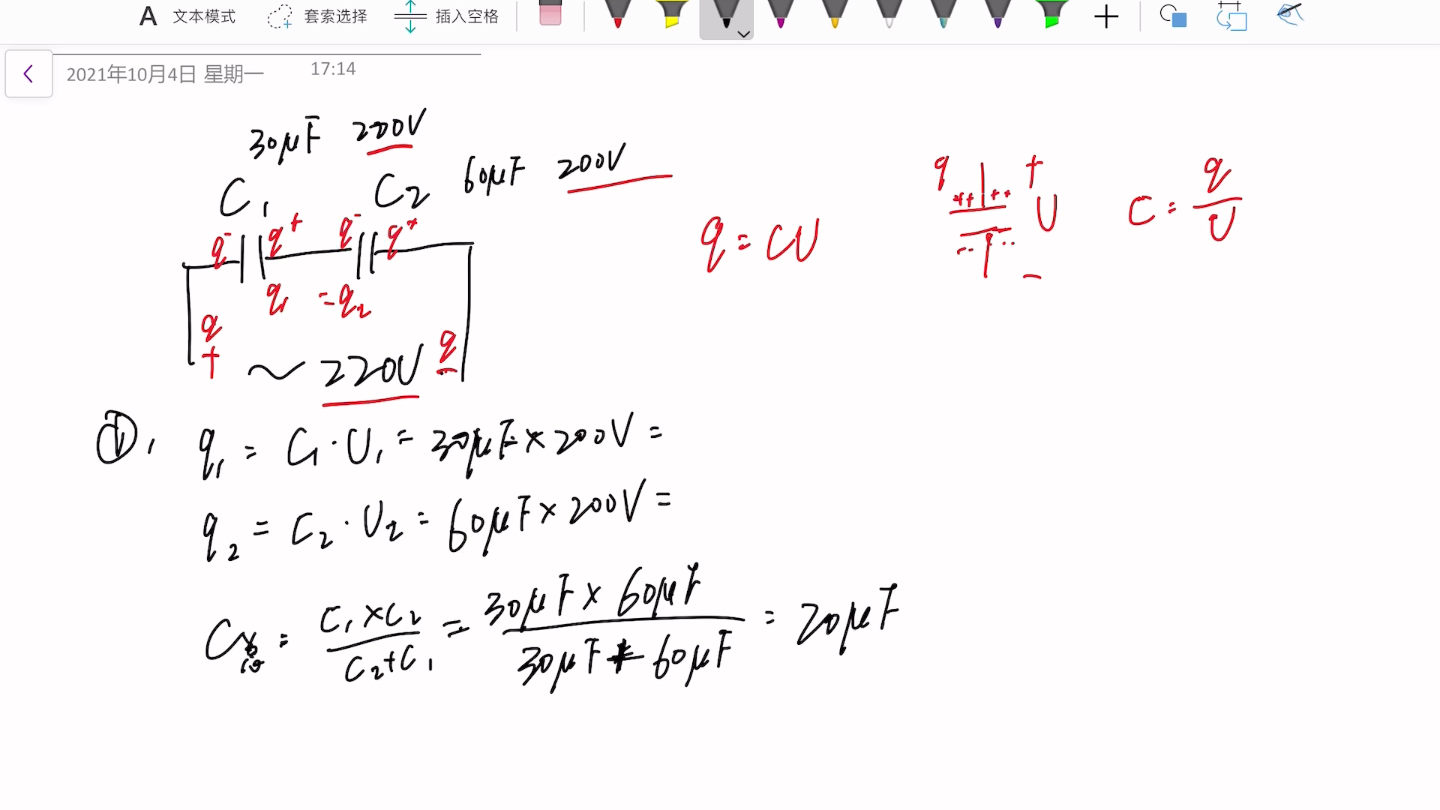 A 文本模式 套索选择 插入空格
2021年10月4日 星期一 17:14
30μF 200V
C₁ C₂ 60μF 200V
q⁻ q⁺ q⁻ q⁺
q₁ = q₂
q + q −
~ 220V
q = CU
q + U −
C = q/U
①, q₁ = C₁·U₁ = 30μF × 200V =
q₂ = C₂·U₂ = 60μF × 200V =
C = C₁×C₂/C₂+C₁ = 30μF × 60μF/30μF + 60μF = 20μF